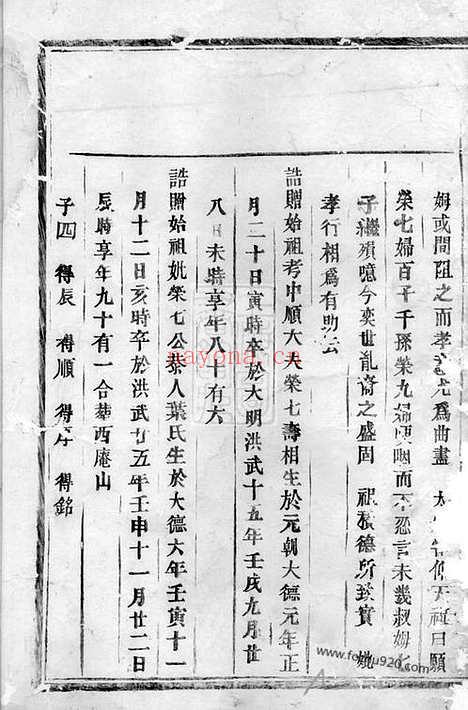 姆或間阻之而孝 為曲畫 天祖曰願
榮七婦百子千孫榮九婦哽咽而不忍言未幾叔姆
子繼殞噫今奕世亂裔之盛固 祖積德所致實 妣
孝行相為有助云
誥贈始祖考中順大夫榮七壽相生於元朝大德元年正
月二十日寅時卒於大明洪武十五年壬戌九月廿
八日未時享年八十有六
誥贈始祖妣榮七公恭人葉氏生於大德六年壬寅十一
月十二日亥時卒於洪武廿五年壬申十一月廿二日
辰時享年九十有一合葬西庵山
子四 得辰 得順 得 得銘
nayona.cn
www.foxtu920.com